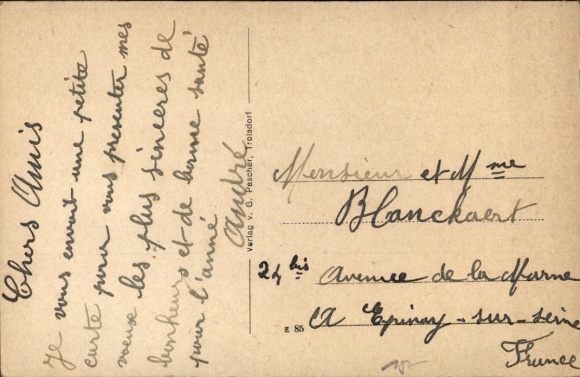 Chers Amis
Je vous envoit une petite
carte pour vous presenter mes
voeuxe les plus sinceres de
bonheurs et de bonne santé
pour l'anné
André
Verlag v. G. Pascher, Troisdorf
Monsieur et Mme
Blanckaert
bis Avenue de la Marne
A Epinay-sur-seine
France
z 85